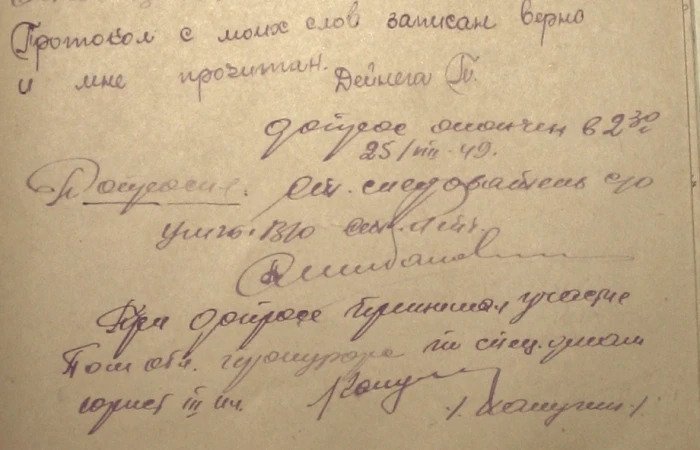 Протокол с моих слов записан верно
и мне прочитан. Дейнега П.
допрос окончен в 2 30
25/VIII-49.
Допросил: ст. следователь с/о
ст. л-нт.
При допросе принимал участие
Пом обл. прокурора по спец. делам
юрист III кл.